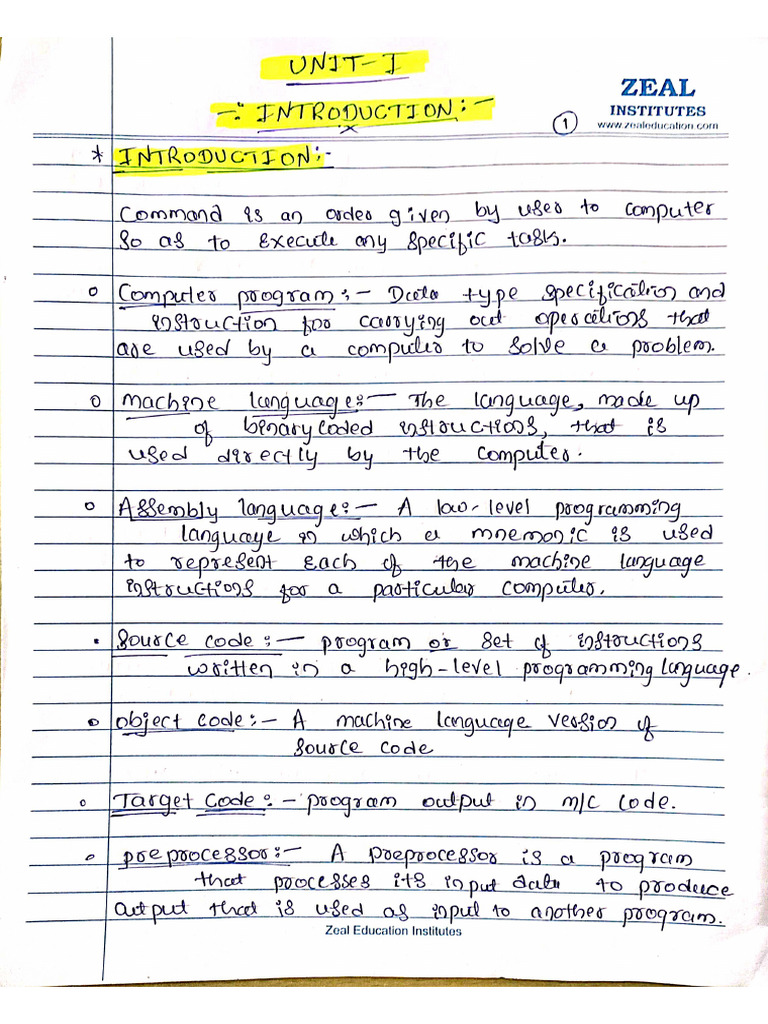 UNIT-I
-: INTRODUCTION :-
ZEAL
INSTITUTES
www.zealeducation.com
1
* INTRODUCTION:-
Command is an order given by user to computer
so as to execute any specific task.
o Computer program:- Data type specification and
instruction for carrying out operations that
are used by a computer to solve a problem.
o machine language:- The language, made up
of binary coded instructions, that is
used directly by the computer.
o Assembly language:- A low-level programming
language in which a mnemonic is used
to represent each of the machine language
instructions for a particular computer.
• Source code:- program or set of instructions
written in a high-level programming language.
o object code:- A machine language version of
source code
o Target Code:- program output in m/c code.
o preprocessor:- A preprocessor is a program
that processes its input data to produce
output that is used as input to another program.
Zeal Education Institutes